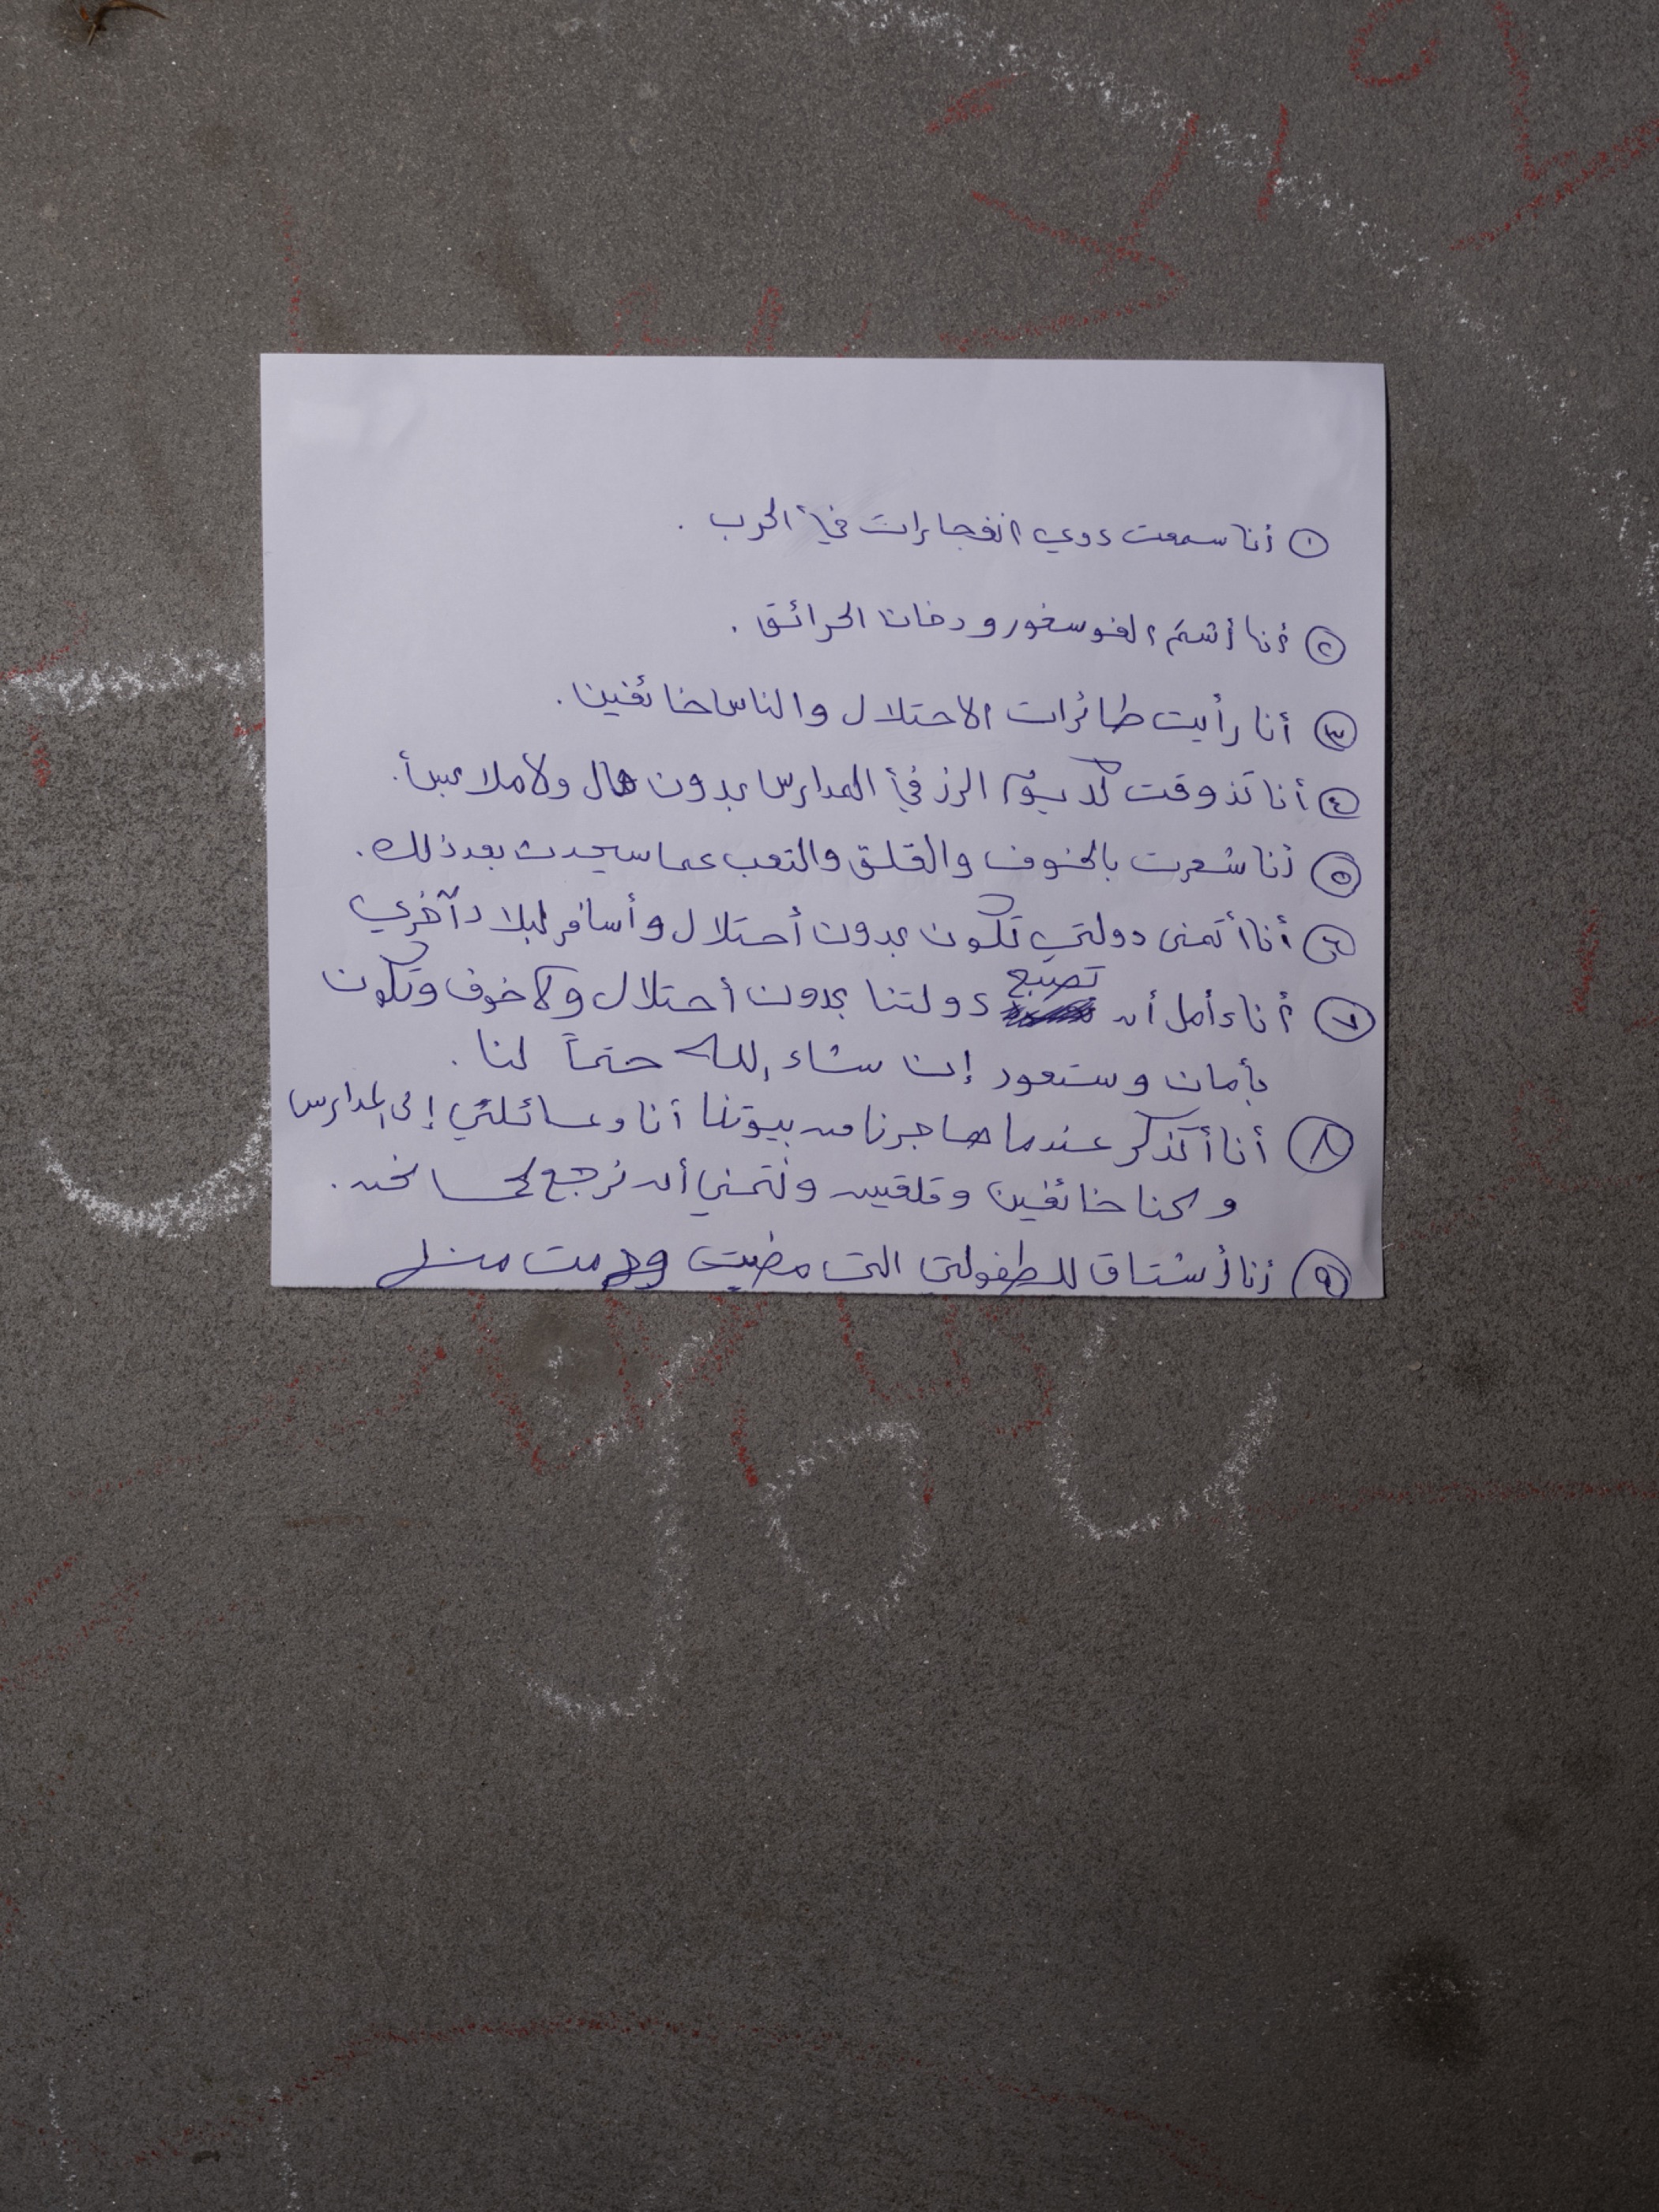 ١ أنا سمعت دوي انفجارات في الحرب .
٢ أنا أشم الفوسفور ودخان الحرائق .
٣ أنا رأيت طائرات الاحتلال والناس خائفين .
٤ أنا تذوقت كل يوم الرز في المدارس بدون مال ولا ملابس .
٥ أنا شعرت بالخوف والقلق والتعب عما سيحدث بعد ذلك .
٦ أنا أتمنى دولتي تكون بدون أحتلال وأسافر لبلاد آخري
٧ أنا أمل أن تصبح دولتنا بدون أحتلال ولا خوف وتكون
بأمان وستعود إن شاء الله حتماً لنا .
٨ أنا أتذكر عندما هاجرنا من بيوتنا أنا وعائلتي إلى المدارس
وكنا خائفين وقلقين ونتمني أن نرجع كما نحن .
٩ أنا أشتاق للطفولتي التي مضيت